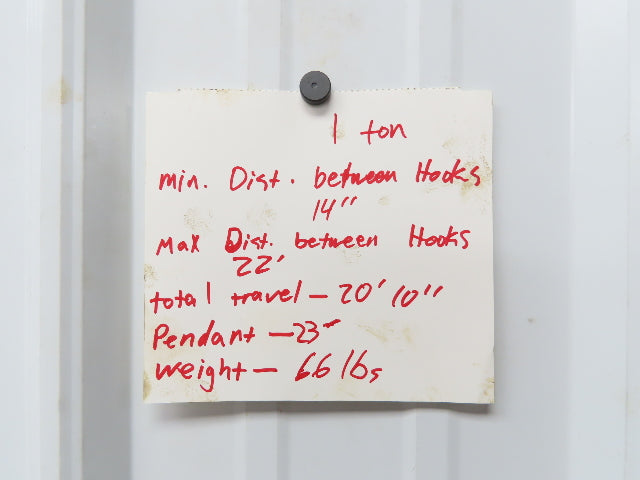 1 ton
min. Dist. between Hooks
14"
Max Dist. between Hooks
22'
total travel - 20' 10"
Pendant - 23'
weight - 66 lbs